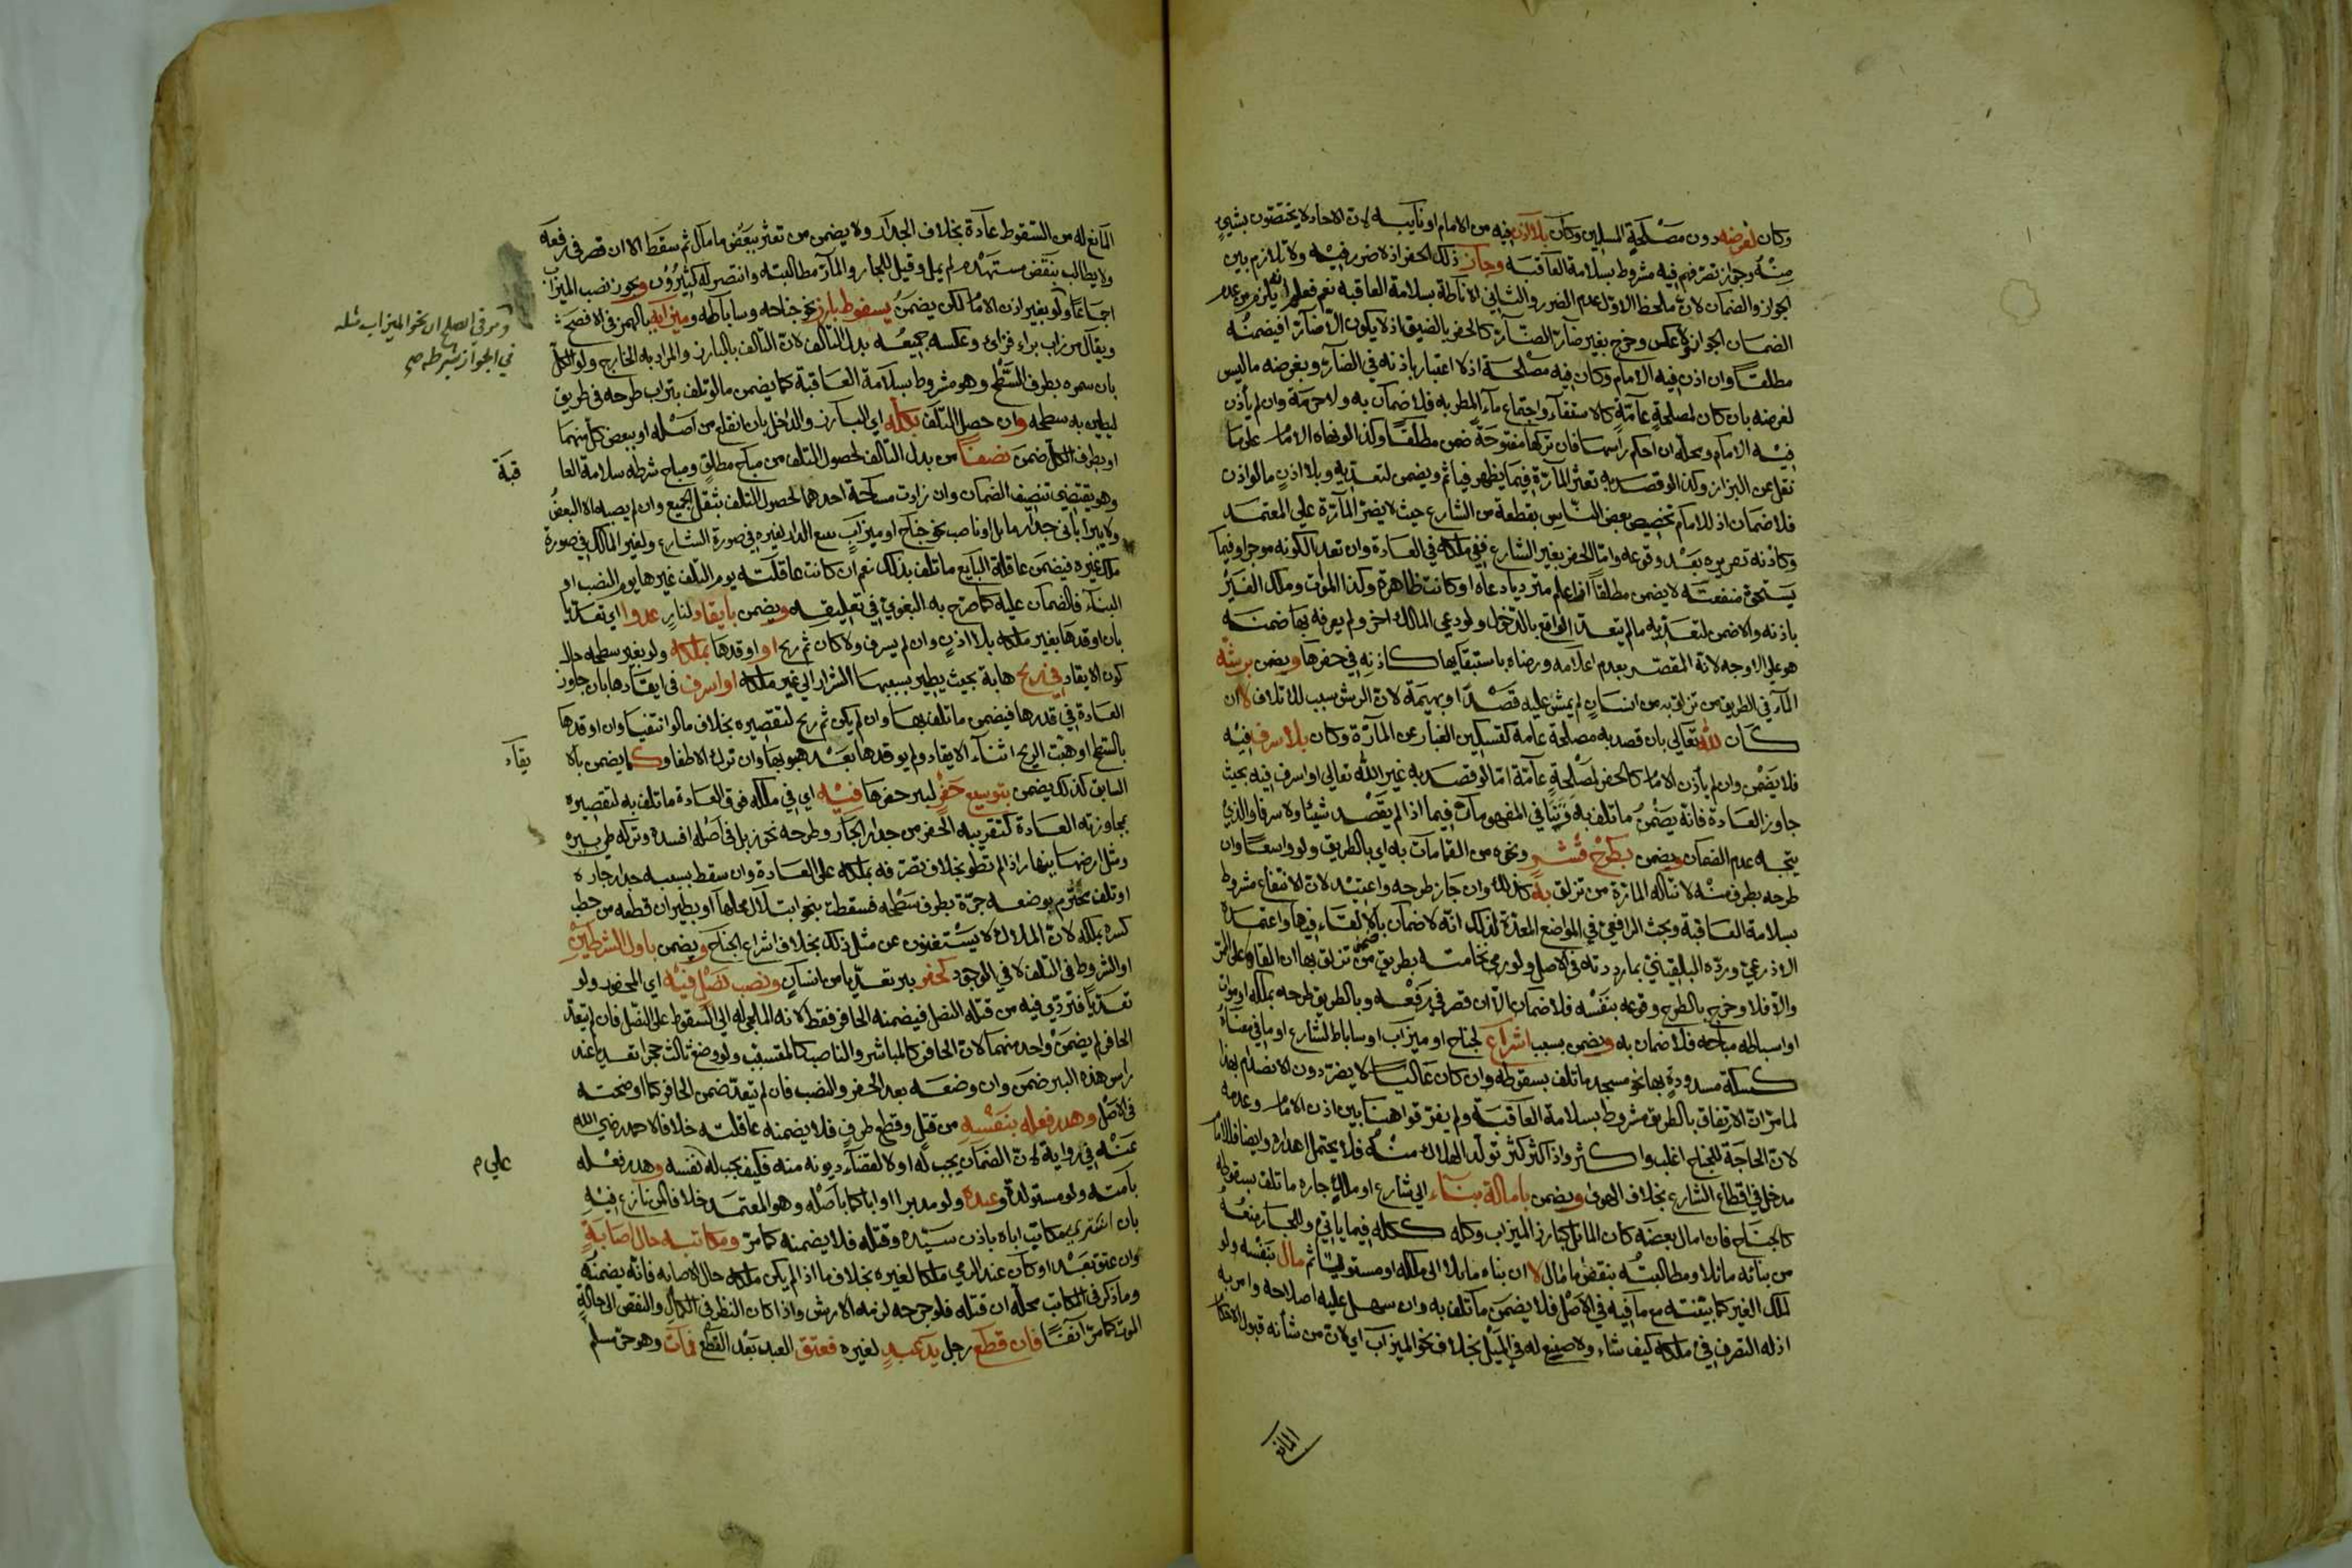 وكان لغرضه دون مصلحة المسلمين وكان بلا اذن فيه من الامام او نايبه لان الاحاد لا يختصون بشيء
منه وجواز تصرفهم فيه مشروط بسلامة العاقبة وجاز ذلك الحفر اذ لا ضرر فيه ولا تلازم بين
الجواز والضمان لان ملحظ الاول عدم الضرر والثاني الاناطة بسلامة العاقبة نعم فعلم انه يلزم من عدم
الضمان الجواز ولا عكس وخرج بغير ضارة الضارة كالحفر بالضيق اذ لا يكون الا ضارا فيضمنه
مطلقا وان اذن فيه الامام وكان فيه مصلحة اذ لا اعتبار باذنه في الضار وبغرضه ما ليس
لغرضه بان كان لمصلحة عامة كالاستقاء واجتماع ماء المطر به فلا ضمان به ولا حرمة وان لم يأذن
فيه الامام ومحله ان احكم راسها فان تركها مفتوحة ضمن مطلقا وكذا لو نهاه الامام على ما
نقل عن البزار وكذا لو قصد به تعثر المارة فيما يظهر فياثم ويضمن لتعديه وبلا اذن ما لو اذن
فلا ضمان اذ للامام تخصيص بعض الناس بقطعة من الشارع حيث لا يضر المارة على المعتمد
وكاذنه تقريره بعد وقوعه واما الحفر بغير الشارع ففي ملكه في العادة وان تعدا لكونه موجرا وفيما
يستحق منفعته لا يضمن مطلقا اذا علم متردياد دعاه او كانت ظاهرة وكذا الموات وملك الغير
باذنه والا ضمن لتعديه ما لم يتعد الواقع بالدخول ولو دعى المالك اخر ولم يعرفه بها ضمنه
هو على الاوجه لانه المقصر بعدم اعلامه ورضاه باستبقايها كاذنه في حفرها ويضمن برشه
الماء في الطريق من تزلق به من انسان لم يمش عليه قصدا او بهيمة لان الرش سبب للاتلاف لا ان
كان لله تعالى بان قصد به مصلحة عامة كتسكين الغبار عن المارة وكان بلا سرف فيه
فلا يضمن وان لم يأذن الامام كالحفر لمصلحة عامة اما لو قصد به غير الله تعالى او اسرف فيه بحيث
جاوز العادة فانه يضمن ما تلف به وبقي في المفهومات فيما اذا لم يقصد شيئا ولا سرفا والذي
يتجه عدم الضمان ويضمن بطرح قشر ونحوه من القمامات به اي بالطريق ولو واسعا وان
طرحه بطرف منه لا تناله المارة من تزلق به كذلك وان جاز طرحه واعتيد لان الانتفاع مشروط
بسلامة العاقبة وبحث الرافعي في المواضع المعدة لذلك انه لا ضمان بالالقاء فيها واعتمده
الاذرعي ورده البلقيني بما رددته في الاصل ولو رمى نخامته بطريق ضمن من تزلق بها ان القاها على الممر
والا فلا وخرج بالطرح وقوعه بنفسه فلا ضمان الا ان قصر في رفعه وبالطريق طرحه بملكه او موات
او اسباطه مباحة فلا ضمان به ويضمن بسبب اشراع لجناح او ميزاب او ساباط لشارع او ما في معناه
كسكة مسدودة بها نحو مسجد ما تلف بسقوطه وان كان غالبا لا يضر دون الانضمام بهذا
لما مر ان الارتفاق بالطريق مشروط بسلامة العاقبة ولم يفرقوا هنا بين اذن الامام وعدمه
لان الحاجة للجناح اغلب واكثر واذا كثر كثر تولد الهلاك منه فلا يحتمل اهداره وايضا فللامام
مدخل في اقطاع الشارع بخلاف الهوى ويضمن باماله بناء الى شارع او ملك جاره ما تلف بسقوطه
كالجناح فان امال بعضه كان المائل كبارز الميزاب وكله ككله فيما ياتي وللجار منعه
من بنائه مائلا ومطالبته بنقض ما مال لا ان بناه مائلا الى ملكه او مستويا ثم مال بنفسه ولو
لملك الغير كما بينته مع ما فيه في الاصل فلا يضمن ما تلف به وان سهل عليه اصلاحه وامر به
اذ له التصرف في ملكه كيف شاء ولا صنع له في الميل بخلاف نحو الميزاب اي لان من شأنه قبول الاحكام
المانع
المانع له من السقوط عادة بخلاف الجدار ولا يضمن من تعثر ببعض ما مال ثم سقط الا ان قصر في رفعه
ولا يطالب بنقض مستهدم لم يمل وقيل للجار والمار مطالبته وانتصر له كثيرون ويجوز نصب الميزاب
اجماعا ولو بغير اذن الامام لكن يضمن بسقوط بارز نحو جناحه وساباطه وميزابه بالهمز في الافصح
ويقال مرزاب براء فزاي وعكسه جميعه بدل التالف لان التالف بالبارز والمراد به الخارج ولو الكل
بان سمره بطرف السطح وهو مشروط بسلامة العاقبة كما يضمن ما لو تلف بتراب طرحه في طريق
ليطين به سطحه وان حصل التلف بكله اي البارز والداخل بان انقلع من اصله او ببعض كل منهما
او بطرف الكل ضمن نصفا من بدل التالف لحصول التلف من مباح مطلق ومباح شرطه سلامة العا قبة
وهو يقتضي تنصيف الضمان وان زادت مساحة احدهما لحصول التلف بثقل الجميع وان لم يصبه الا البعض
ولا يبرأ باني جدار مايل او ناصب نحو جناح او ميزاب ببيع الدار لغيره في صورة الشارع ولغير المالك في صورة
ملك غيره فيضمن عاقلة البايع ما تلف بذلك نعم ان كانت عاقلته يوم التلف غيرها يوم النصب او
البناء فالضمان عليه كما صرح به البغوي في تعليقه ويضمن بايقاد لنار عدوا اي تعديا
بان اوقدها بغير ملكه بلا اذن وان لم يسرف ولا كان ثم ريح او اوقدها بملكه ولو بغير سطحه حال
كون الايقاد في ريح هابة بحيث يطير بسببها الشرار الى غير ملكه او اسرف في ايقادها بان جاوز
العادة في قدرها فيضمن ما تلف بها وان لم يكن ثم ريح لتقصيره بخلاف ما لو انتفيا وان اوقدها
بالسطح او هبت الريح اثناء الايقاد ولم يوقدها بعد هبوبها وان ترك الاطفا وكما يضمن بالا يقاد
السابق كذلك يضمن بتوسيع حفر لبير حفرها فيه اي في ملكه فوق العادة ما تلف به لتقصيره
بمجاوزته العادة كتقريبه الحفر من جدار الجار وطرحه نحو زبل في اصله افسده وتركه طي بيره
ومثل ارضها ينهار اذا لم تطو بخلاف تصرفه بملكه على العادة وان سقط بسببه جدار جاره
او تلف محترم بوضعه جرة بطرف سطحه فسقطت بنحو ابتلال محلها او بطيران قطعة من حطب
كسره بملكه لان الملاك لا يستغنون عن مثل ذلك بخلاف اشراع الجناح ويضمن باول الشرطين
او الشروط في التلف لا في الوجود كحفر بير تعديا من انسان ونصب نصل فيه اي المحفور ولو
تعديا فتردي فيه من قتله النصل فيضمنه الحافر فقط لانه الملجي له الى السقوط على النصل فان لم يتعد
الحافر لم يضمن واحد منهما لان الحافر كالمباشر والناصب كالمتسبب ولو وضع ثالث حجرا تعديا عند
راس هذه البير ضمن وان وضعه بعد الحفر والنصب فان لم يتعد ضمن الحافر كما اوضحته
في الاصل وهدر فعله بنفسه من قتل وقطع طرف فلا يضمنه عاقلته خلافا لاحمد رضي الله
عنه في رواية لان الضمان يجب له اولا لقضاء ديونه منه فكيف يجب له نفسه وهدر فعله
بامته ولو مستولدة وعبده ولو مدبرا او ابا كما باصله وهو المعتمد خلافا لمن نازع فيه
بان اشترى مكاتب اباه باذن سيده وقتله فلا يضمنه كما مر ومكاتبه حال اصابة
وان عتق بعد او كان عند الرمي ملكا لغيره بخلاف ما اذا لم يكن ملكه حال الاصابه فانه يضمنه
وما ذكر في المكاتب محله ان قتله فلو جرحه لزمه الارش واذا كان النظر في الكمال والنقص الى حالة
الموت كما مر آنفا فان قطع رجل يد عبد لغيره فعتق العبد بعد القطع فمات وهو حر مسلم
ومر في الصلح ان نحو الميزاب مثله
في الجواز بشرطه صح
على م